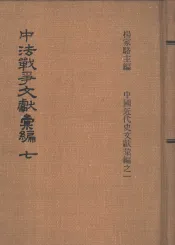 楊家駱主編
中國近代史文獻彙編之一
中法戰爭文獻彙編 七